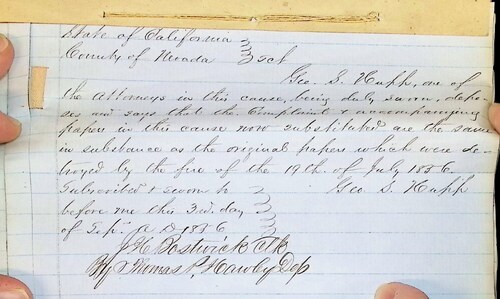 State of California
County of Nevada } Sct
Geo. S. Hupp, one of
the Attorneys in this cause, being duly sworn, depo-
ses and says that the Complaint & accompanying
papers in this cause now substituted are the same
in substance as the original papers which were de-
troyed by the fire of the 19th of July 1856.
Subscribed & sworn to } Geo S. Hupp
before me this 3rd. day
of Sep. A D 1856
J H Bostwick Clk
By Thomas P. Hawley Dep